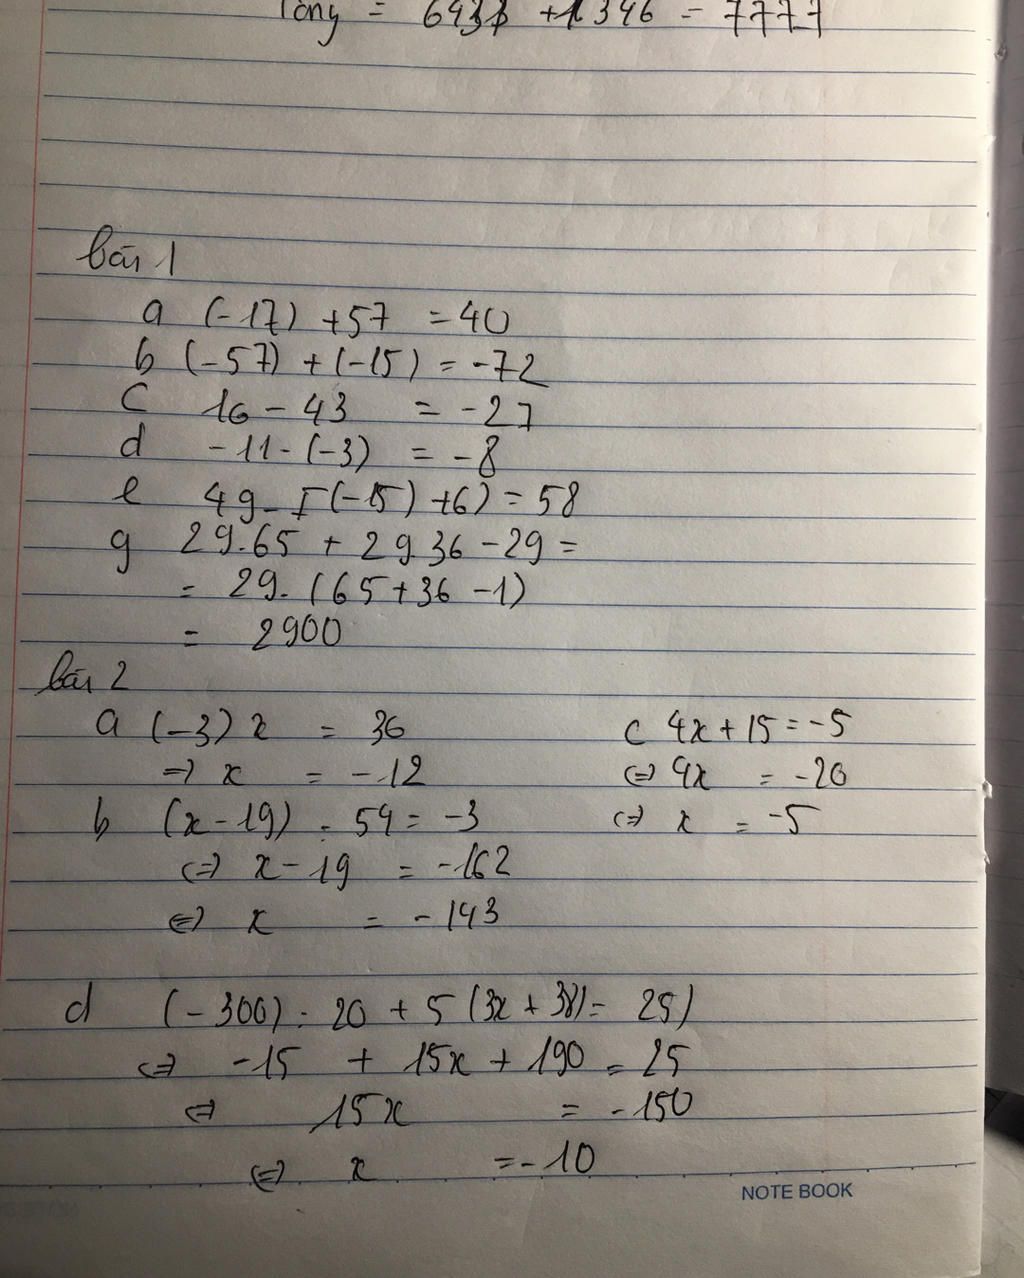 Tổng = 6431 + 1346 = 7777
bài 1
a (-17) + 57 = 40
b (-57) + (-15) = -72
c 16 - 43 = -27
d -11 - (-3) = -8
e 49 - [(-15) + 6) = 58
g 29.65 + 29 36 - 29 =
= 29. (65 + 36 - 1)
= 2900
bài 2
a (-3) x = 36
=> x = -12
b (x - 19) : 54 = -3
<=> x - 19 = -162
<=> x = -143
c 4x + 15 = -5
<=> 4x = -20
<=> x = -5
d (-300) : 20 + 5 (3x + 38) = 25)
<=> -15 + 15x + 190 = 25
<=> 15x = -150
<=> x = -10
NOTE BOOK